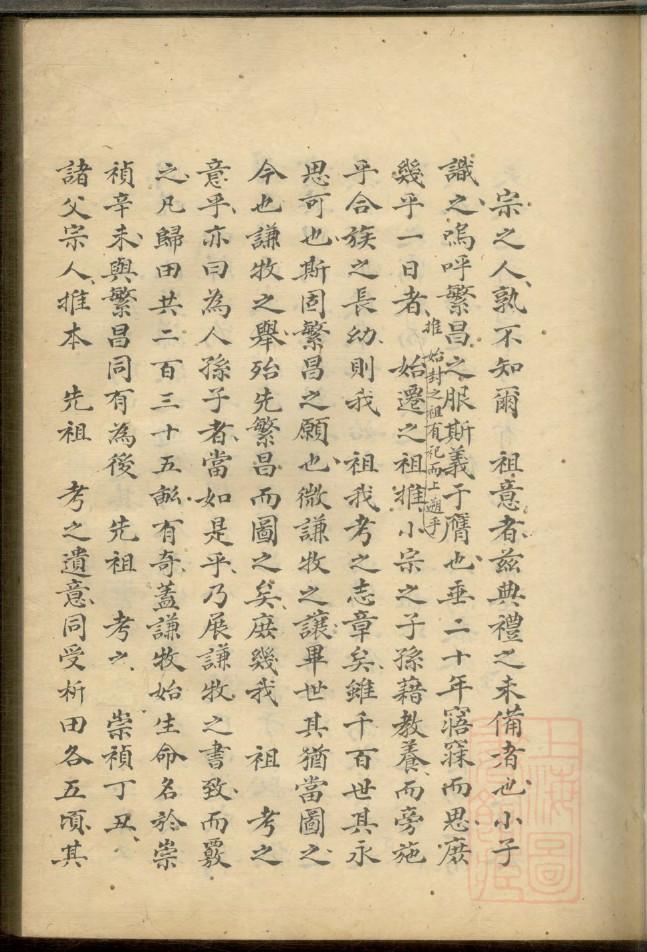 宗之人孰不知爾　祖意者茲典禮之未備者也小子
識之嗚呼繁昌之服斯義于膺也垂二十年寤寐而思庶
幾乎一日者推始封之祖有祀而上遡乎始遷之祖推小宗之子孫藉教養而旁施
乎合族之長幼則我　祖我考之志章矣雖千百世其永
思可也斯固繁昌之願也微謙牧之讓畢世其猶當圖之
今也謙牧之舉殆先繁昌而圖之矣庶幾我　祖　考之
意乎亦曰為人孫子者當如是乎乃展謙牧之書致而覈
之凡歸田共二百三十五畝有奇蓋謙牧始生命名於崇
禎辛未與繁昌同有為後　先祖　考之　崇禎丁丑
諸父宗人推本　先祖　考之遺意同受析田各五頃其
上海圖